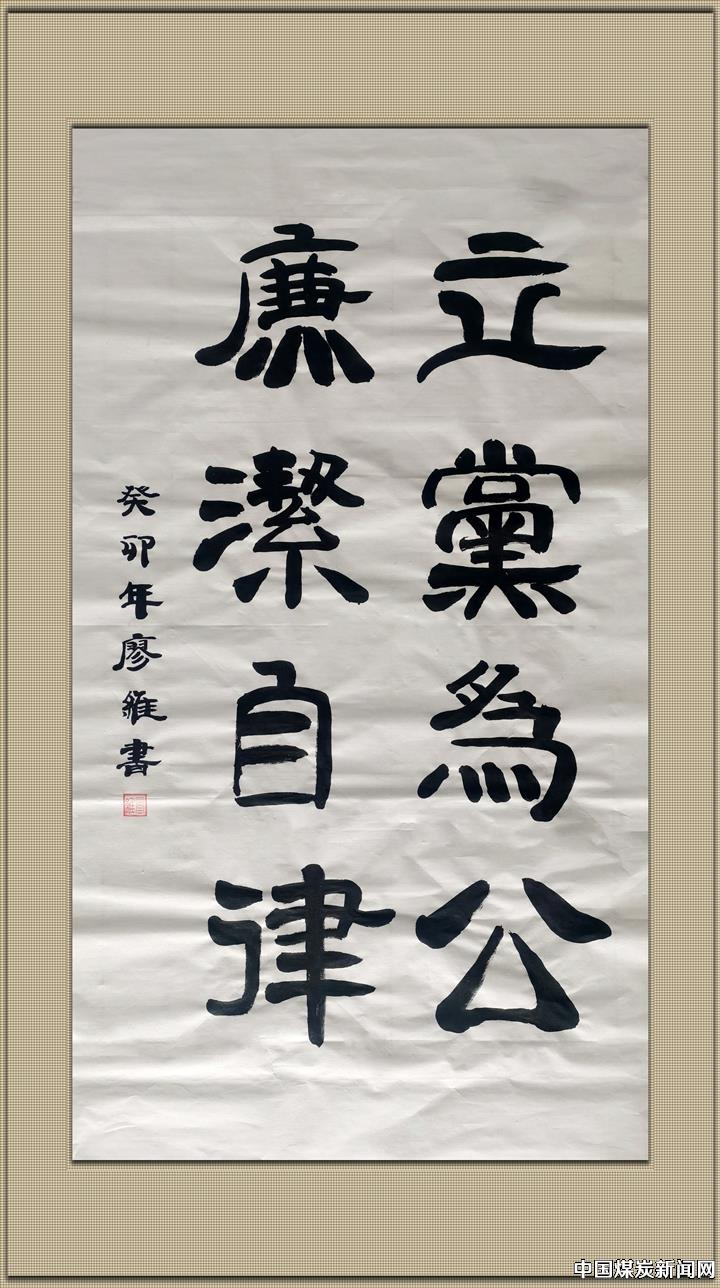 立黨為公
廉潔自律
癸卯年廖維書
中国煤炭新闻网